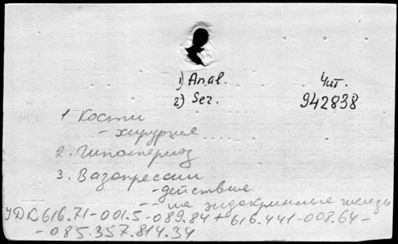 1) Anal. Чит.
2) Sez. 942838
1. Кости
- хирургия
2. Гипотиреоз
3. Вазопрессин
- действие
- - на эндокринные железы
УДК 616.71-001.5-089.84+616.441-008.64-
-085.357.814.34